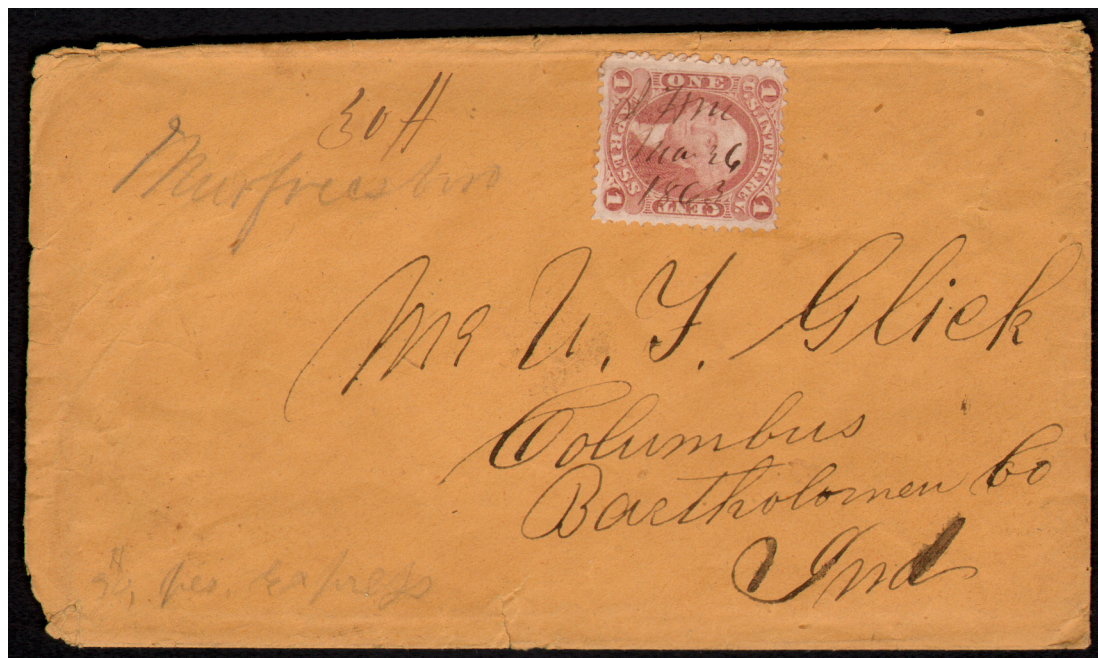 30 H
Murfreesboro
1 ONE 1
U.S. INTER. REV.
EXPRESS
1 CENT 1
Mar 26
1863
Mr U. F. Glick
Columbus
Bartholomew Co
Ind
per. Express